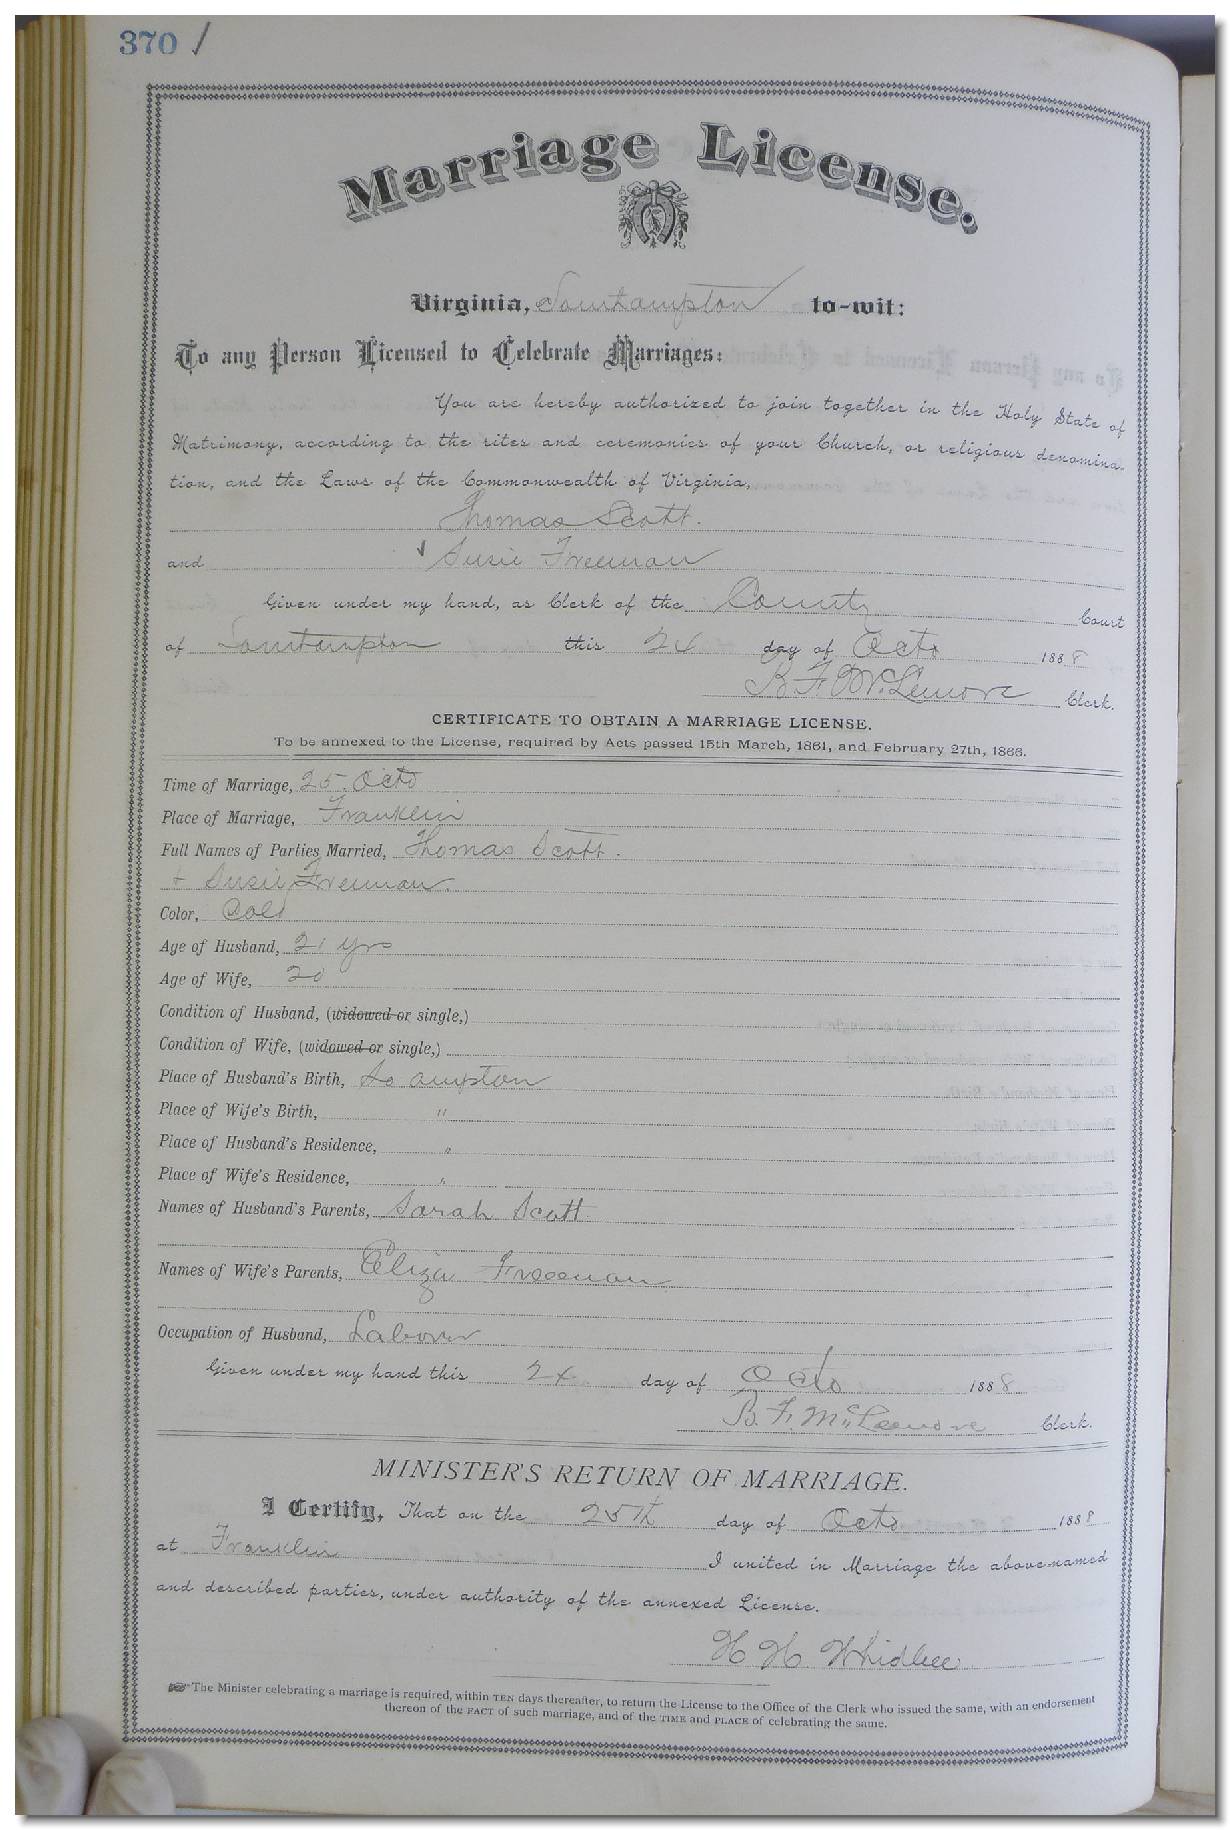 370 /
Marriage License.
Virginia, Southampton to-wit:
To any Person Licensed to Celebrate Marriages:
You are hereby authorized to join together in the Holy State of
Matrimony, according to the rites and ceremonies of your Church, or religious denomina-
tion, and the Laws of the Commonwealth of Virginia,
Thomas Scott.
and Susie Freeman
Given under my hand, as Clerk of the County Court
of Southampton this 24 day of Octo 1888
B. F. McLemore Clerk.
CERTIFICATE TO OBTAIN A MARRIAGE LICENSE.
To be annexed to the License, required by Acts passed 15th March, 1861, and February 27th, 1866.
Time of Marriage, 25 Octo
Place of Marriage, Franklin
Full Names of Parties Married, Thomas Scott.
+ Susie Freeman.
Color, Cold
Age of Husband, 21 yrs
Age of Wife, 20
Condition of Husband, (widowed or single,)
Condition of Wife, (widowed or single,)
Place of Husband's Birth, So ampton
Place of Wife's Birth, "
Place of Husband's Residence, "
Place of Wife's Residence, "
Names of Husband's Parents, Sarah Scott
Names of Wife's Parents, Eliza Freeman
Occupation of Husband, Laborer
Given under my hand this 24 day of Octo 1888
B. F. McLemore Clerk.
MINISTER'S RETURN OF MARRIAGE.
I Certify, That on the 25th day of Octo 1888
at Franklin I united in Marriage the above-named
and described parties, under authority of the annexed License.
H H Whidbee
The Minister celebrating a marriage is required, within TEN days thereafter, to return the License to the Office of the Clerk who issued the same, with an endorsement
thereon of the FACT of such marriage, and of the TIME and PLACE of celebrating the same.